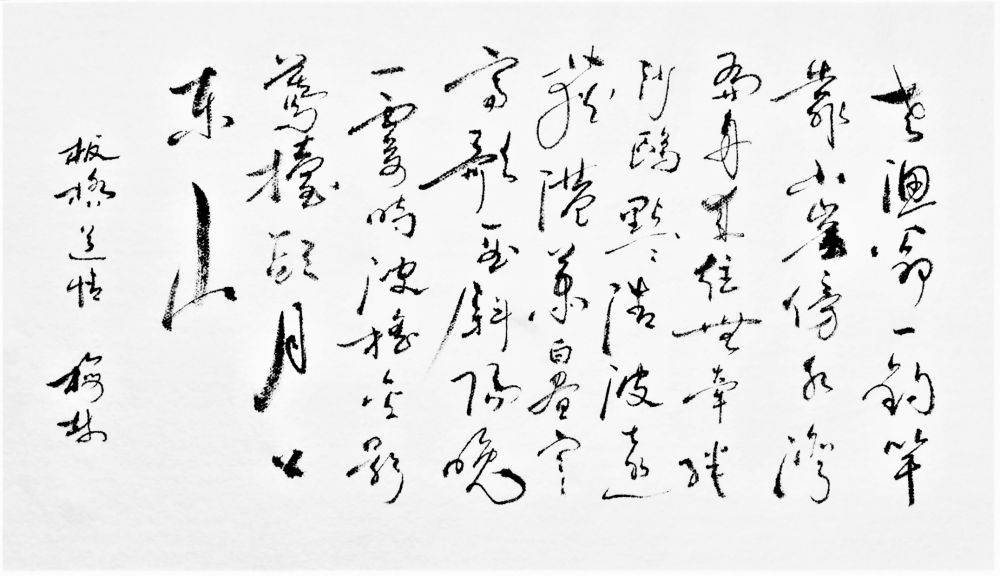 老漁翁一釣竿
靠山崖傍水灣
扁舟來往無牽絆
沙鷗點〻清波遠
荻港蕭〻白晝寒
高歌一曲斜陽晚
一霎時波搖金影
驀擡頭月上
东山
板橋道情 梅林